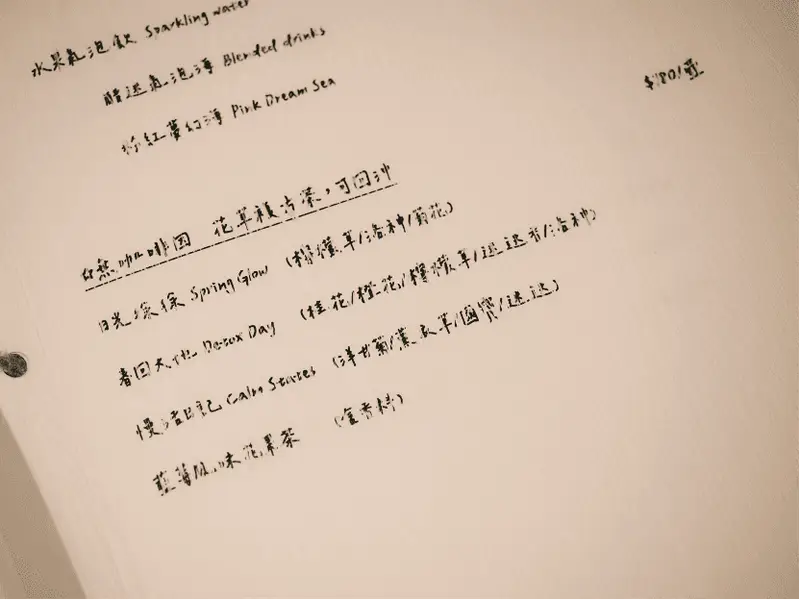 水果氣泡飲 Sparkling water
醋迷氣泡海 Blended drinks
粉紅夢幻海 Pink Dream Sea
$180/壺
無咖啡因 花草複方茶,可回沖
日光採徐 Spring Glow (檸檬草/洛神/菊花)
春回大地 Detox Day (桂花/橙花/檸檬草/迷迭香/洛神)
慢活日記 Calm States (洋甘菊/薰衣草/國寶/迷迭)
藍莓風味花果茶 (含香料)